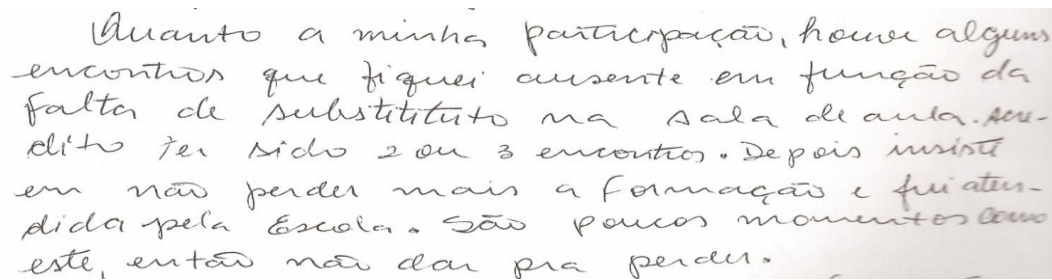 Quanto a minha participação, houve alguns
encontros que fiquei ausente em função da
falta de substitituto na sala de aula. Acre-
dito ter sido 2 ou 3 encontros. Depois insisti
em não perder mais a formação e fui aten-
dida pela Escola. São poucos momentos como
este, então não dar pra perder.